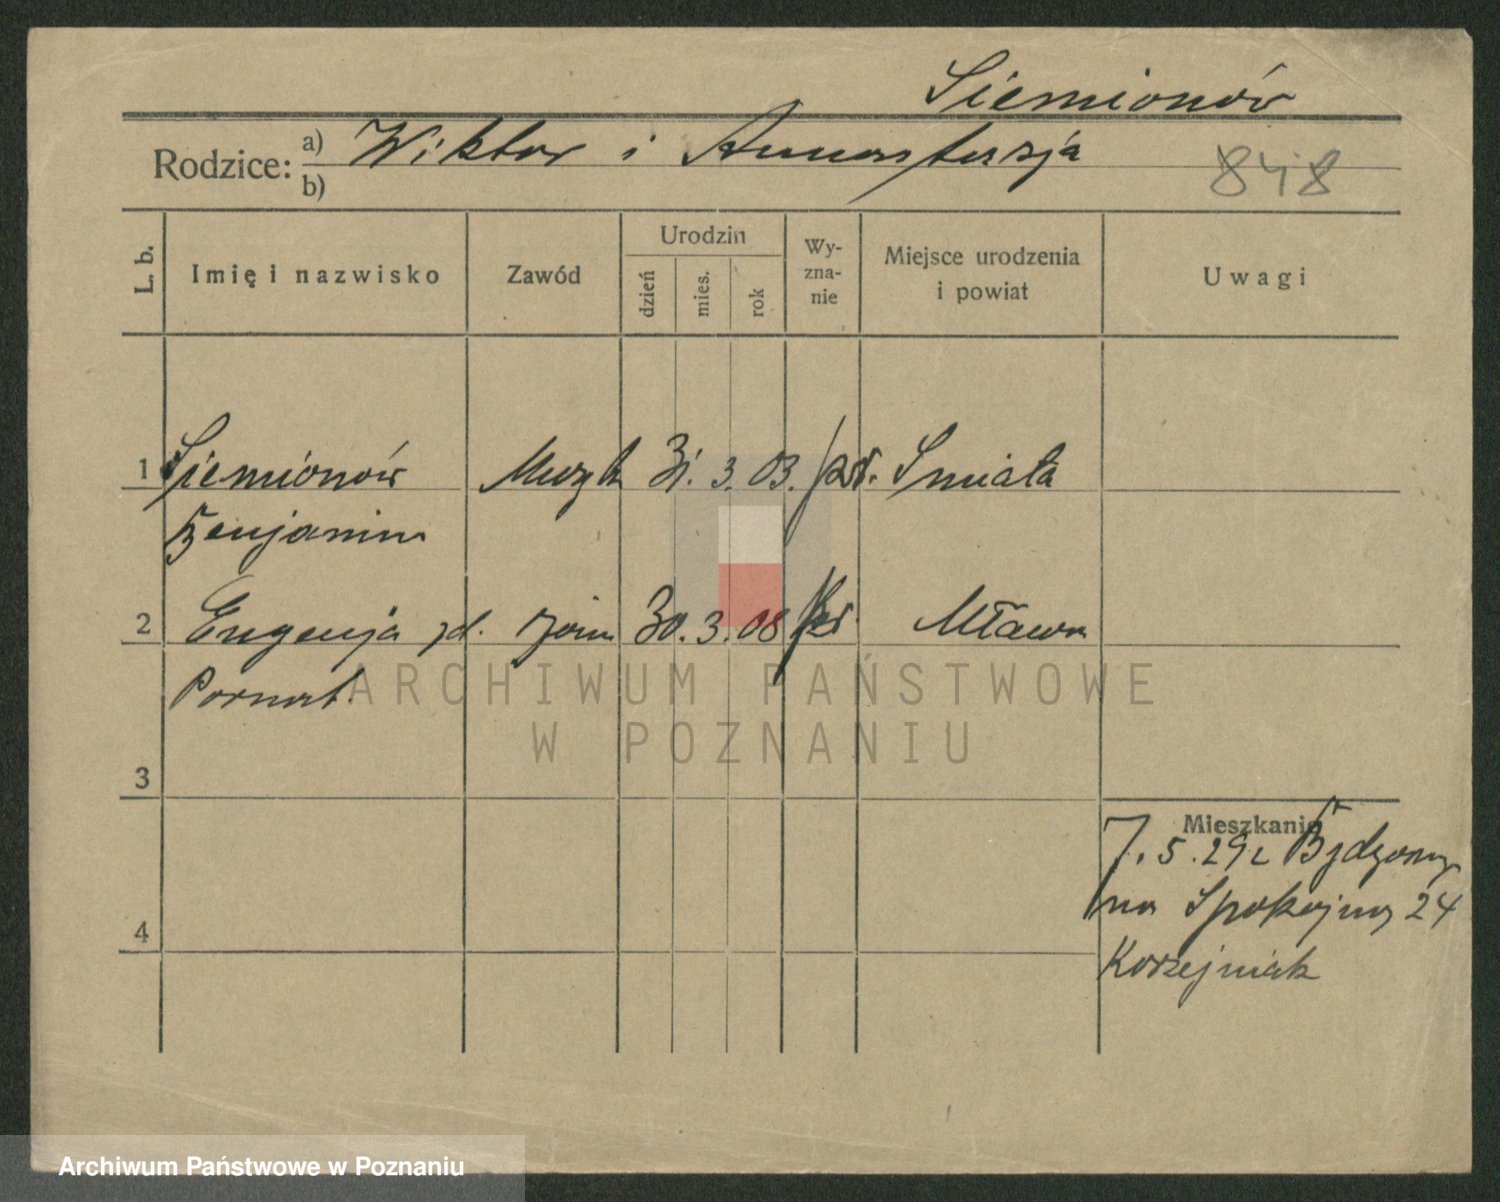 Siemionów
Rodzice: a) Wiktor i Anastazja
b)
848
L. b.
Imię i nazwisko
Zawód
Urodzin
dzień
mies.
rok
Wy-
zna-
nie
Miejsce urodzenia
i powiat
Uwagi
1 Siemionów Muzyk 31. 3. 03. pr. Smiała
Benjamin
2 Eugenja zd. 30. 3. 08 Mława
Pornat.
ARCHIWUM PAŃSTWOWE
W POZNANIU
3
Mieszkanie
7. 5. 29 z Bydgoszcz
na Spokojna 24
4
Korzejniak
Archiwum Państwowe w Poznaniu